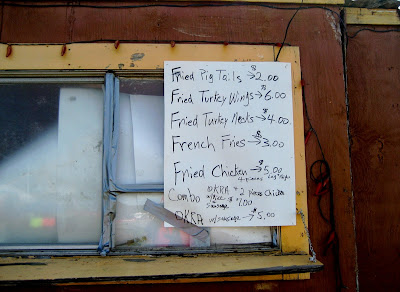 Fried Pig Tails → $2.00
Fried Turkey Wings → $6.00
Fried Turkey Necks → $4.00
French Fries → $3.00
Fried Chicken → $5.00
4 pieces
Combo OKRA 2 pieces Chicken
w/Rice
Sausage $7.00
OKRA w/sausage → $5.00